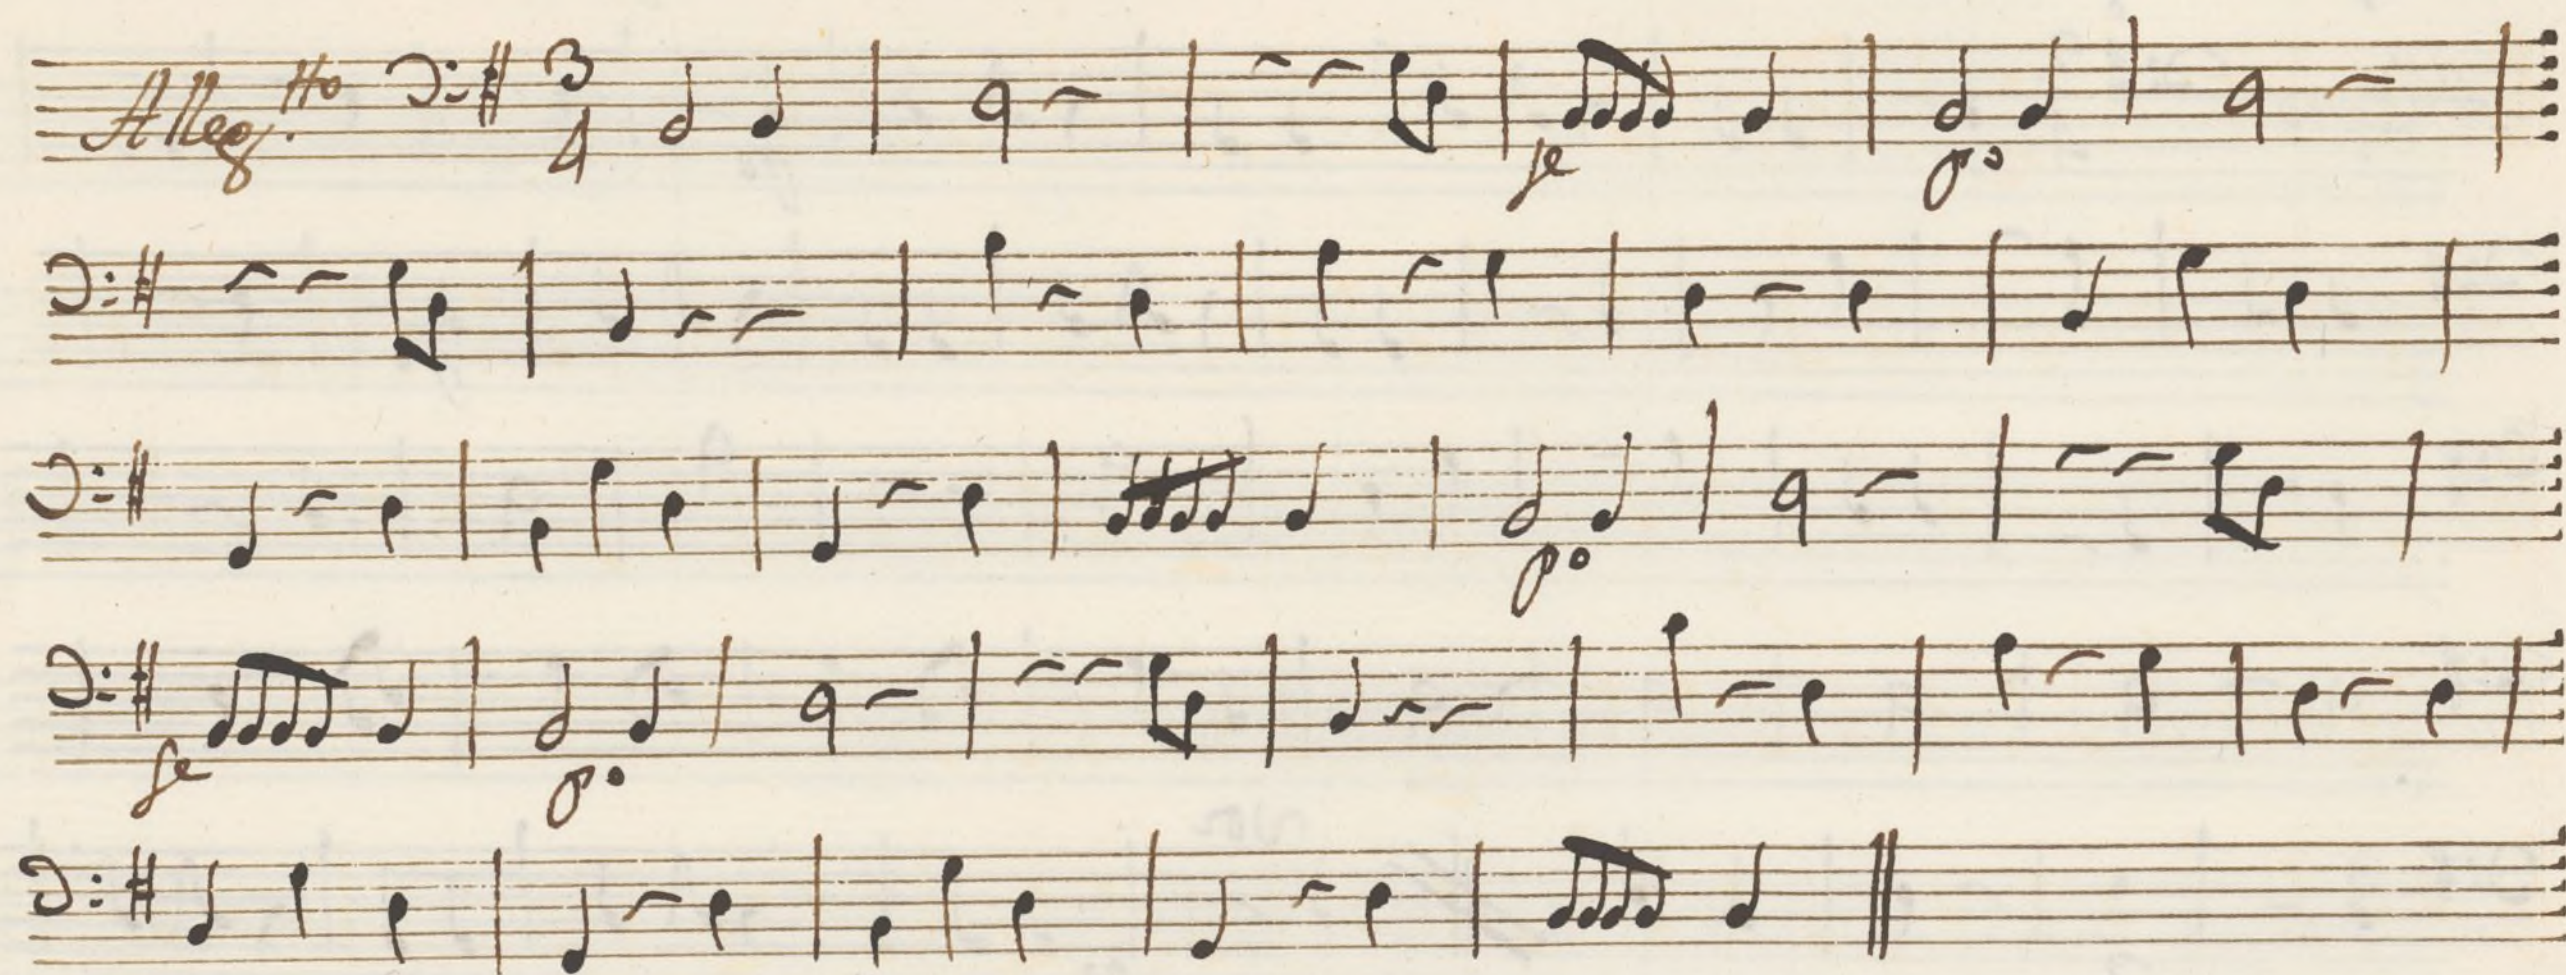 Alleg.tto 3
4
fe po
po
fe po